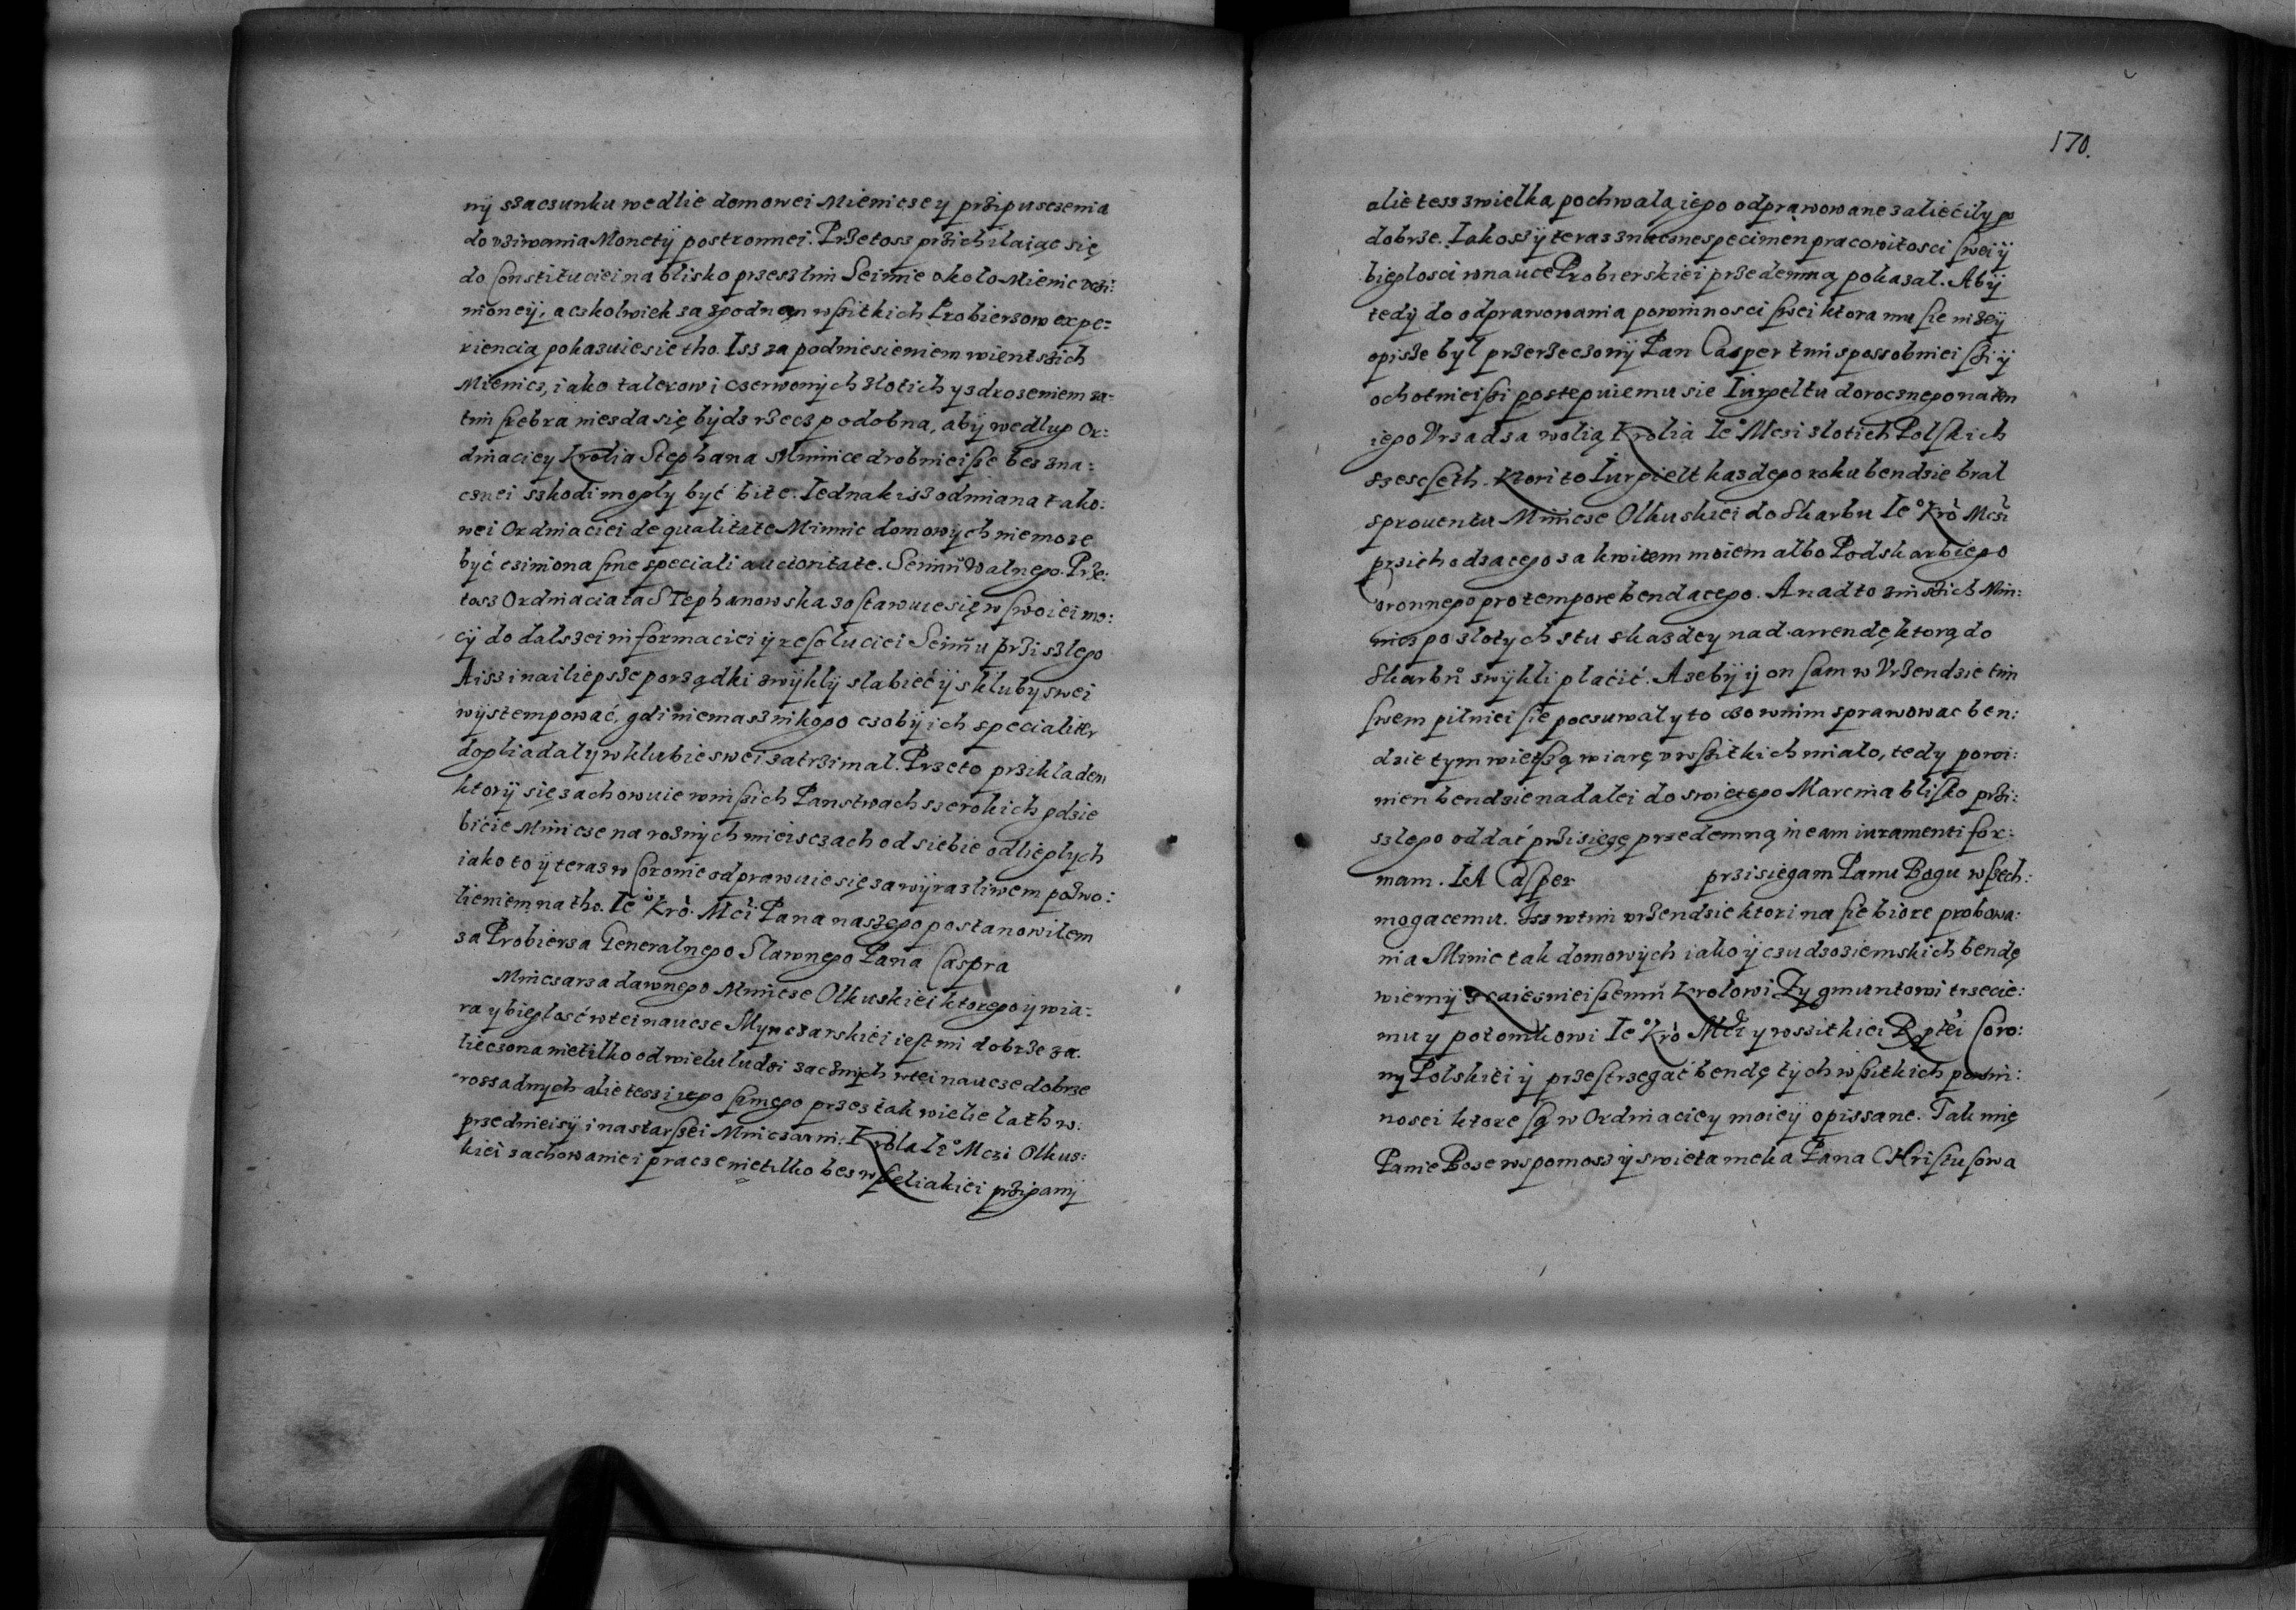 nÿ szacsunku wedlie domowei Miennicsey pržipusczenia
do vziwania Monetÿ postronnei. Pržetosz pržichilaiąc się
do Constituciei na blisko przeszlim Seimie około Miennic vczi:
nioneÿ, aczkolwiek za zgodną wssitkich Probierzow expe:
riencią pokazuie sie tho. Isz za podniesieniem wientszich
Miennicz, iako talerow i czerwonych zlotich y zdrozeniem za:
tim srebra niezda się bÿdz rzecz podobna, abÿ wedlug Or:
dinaciey Krolia Stephana Minnice drobnieisse bez zna:
cznei szkodi mogly być bite. Iednak isz odmiana tako:
wei Ordinaciei de qualitate Minnic domowych nie moze
być cziniona sine speciali auctoritate. Seimu Walnego. Prze:
tosz Ordinacia ta Stephanowska zostawuie się w swoiei mo:
cÿ do dalszei informaciei ÿ resoluciei Seimu prżiszlego
A isz i nailiepsze porządki zwÿklÿ slabieć ÿ z kluby swei
wÿstempować, gdi niemasz nikogo czobÿ ich specialiter
dogliadal y w klubie swei zatrzimal. Przeto prziklade
ktorÿ się zachowuie w inssich Panstwach szerokich gdzie
bicie Minicze na roznÿch mieisczach od siebie odlieglych
iako to ÿ teraz w Coronie odprawuie się za wÿrazliwem pozwo:
lieniem na tho. Ieº Krò. Mci Pana naszego postanowilem
za Probierza Generalnego Slawnego Pana Caspra
Minczarza dawnego Minicze Olkuskiei ktorego ÿ wia:
ra y bieglosć w tei naucze Mynczarskiei iest mi dobrze za:
lieczona nietilko od wielu ludzi zacznych w tei naucze dobrze
rossadnych alie tesz i iego samego przez tak wielie lath w:
przednieisÿ i nastarssei Minczarni: Krola Ieº Mczi Olkus:
kiei zachowanie i pracze nietilko bez wsseliakiei przigani
170.
alie tesz z wielką pochwalą iego odprawowane zaliecily go
dobrze. Iakosz ÿ teraz znaczne specimen pracowitosci swei ÿ
bieglosci w nauce Probierskiei przedemną pokazal. Abÿ
tedÿ do odprawowania powinnosci swei ktora mu sie nizeÿ
opisze byl przerzeczonÿ Pan Casper tim sposobnieissi ÿ
ochotnieissi postepuiemu sie Iurgeltu dorocznego na ten
iego Vrzad za wolią Krolia Ieº Mczi zlotich Polskich
szescseth. Ktori to Iurgielt kazdego roku bendzie bral
z prouentu Minnicze Olkuskiei do Skarbu Ieº Krò Mczi
przichodzacego za kwitem moiem albo Podskarbiego
Coronnego pro tempore bendacego. A nad to z inszich Min:
nicz po zlotych stu z kazdey nad arrendę ktorą do
Skarbů zwÿkli placić. A zebÿ ÿ on sam w Vrzendzie tim
swem pilniei sie poczuwal y to czo w nim sprawowac ben:
dzie tym wietszą wiarę v wssitkich mialo, tedy powi:
nien bendzie nadalei do swietego Marcina blisko przi:
szlego oddać przisięgę przedemną in eam iuramenti for:
mam. IA Casper przisiegam Panu Bogu wssech:
mogacemu. Isz w tim vrzendzie ktori na sie biore probowa:
nia Minnic tak domowÿch iako ÿ czudzoziemskich bendę
wiernÿ Krolowi Zygmuntowi trzecie:
mu y potomkowi Ieº Krò Mci y wssitkiei Rptei Coro:
nÿ Polskiei ÿ przestrzegać bendę tÿch wssitkich powin:
nosci ktore są w Ordinaciey moieÿ opissane. Tak mię
Panie Boze wspomosz ÿ swieta meka Pana CHristusowa